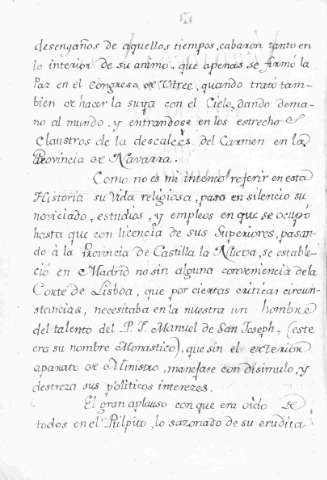 desengaños de aquellos tiempos, cabaron tanto en
lo interior de su animo, que apenas se firmó la
Paz en el Congreso de Utrec, quando trató tam-
bien de hacer la suya con el Cielo, dando de ma-
no al mundo, y entrandose en los estrechos
Claustros de la descalcès del Carmen en la
Provincia de Navarra.
Como no es mi intento referir en esta
Historia su vida religiosa, paso en silencio su
noviciado, estudios, y empleos en que se ocupó
hasta que con licencia de sus Superiores, pasan-
do à la Provincia de Castilla la Nueva, se estable-
ció en Madrid no sin alguna conveniencia de la
Corte de Lisboa, que por ciertas criticas circun-
stancias, necesitaba en la nuestra un hombre
del talento del P. F. Manuel de San Joseph, (este
era su nombre Monastico), que sin el exterior
aparato de Ministro, manejase con disimulo, y
destreza sus politicos interezes.
El gran aplauso con que era oido de
todos en el Pulpito, lo sazonado de su erudita